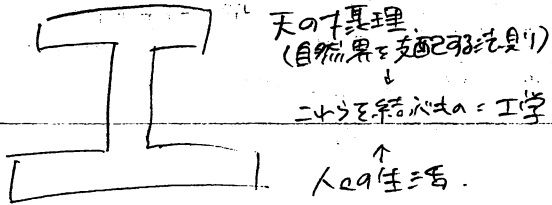 工
天の十真理
(自然界を支配する法則)
↓
これらを結ぶもの = 工学
↑
人々の生活.